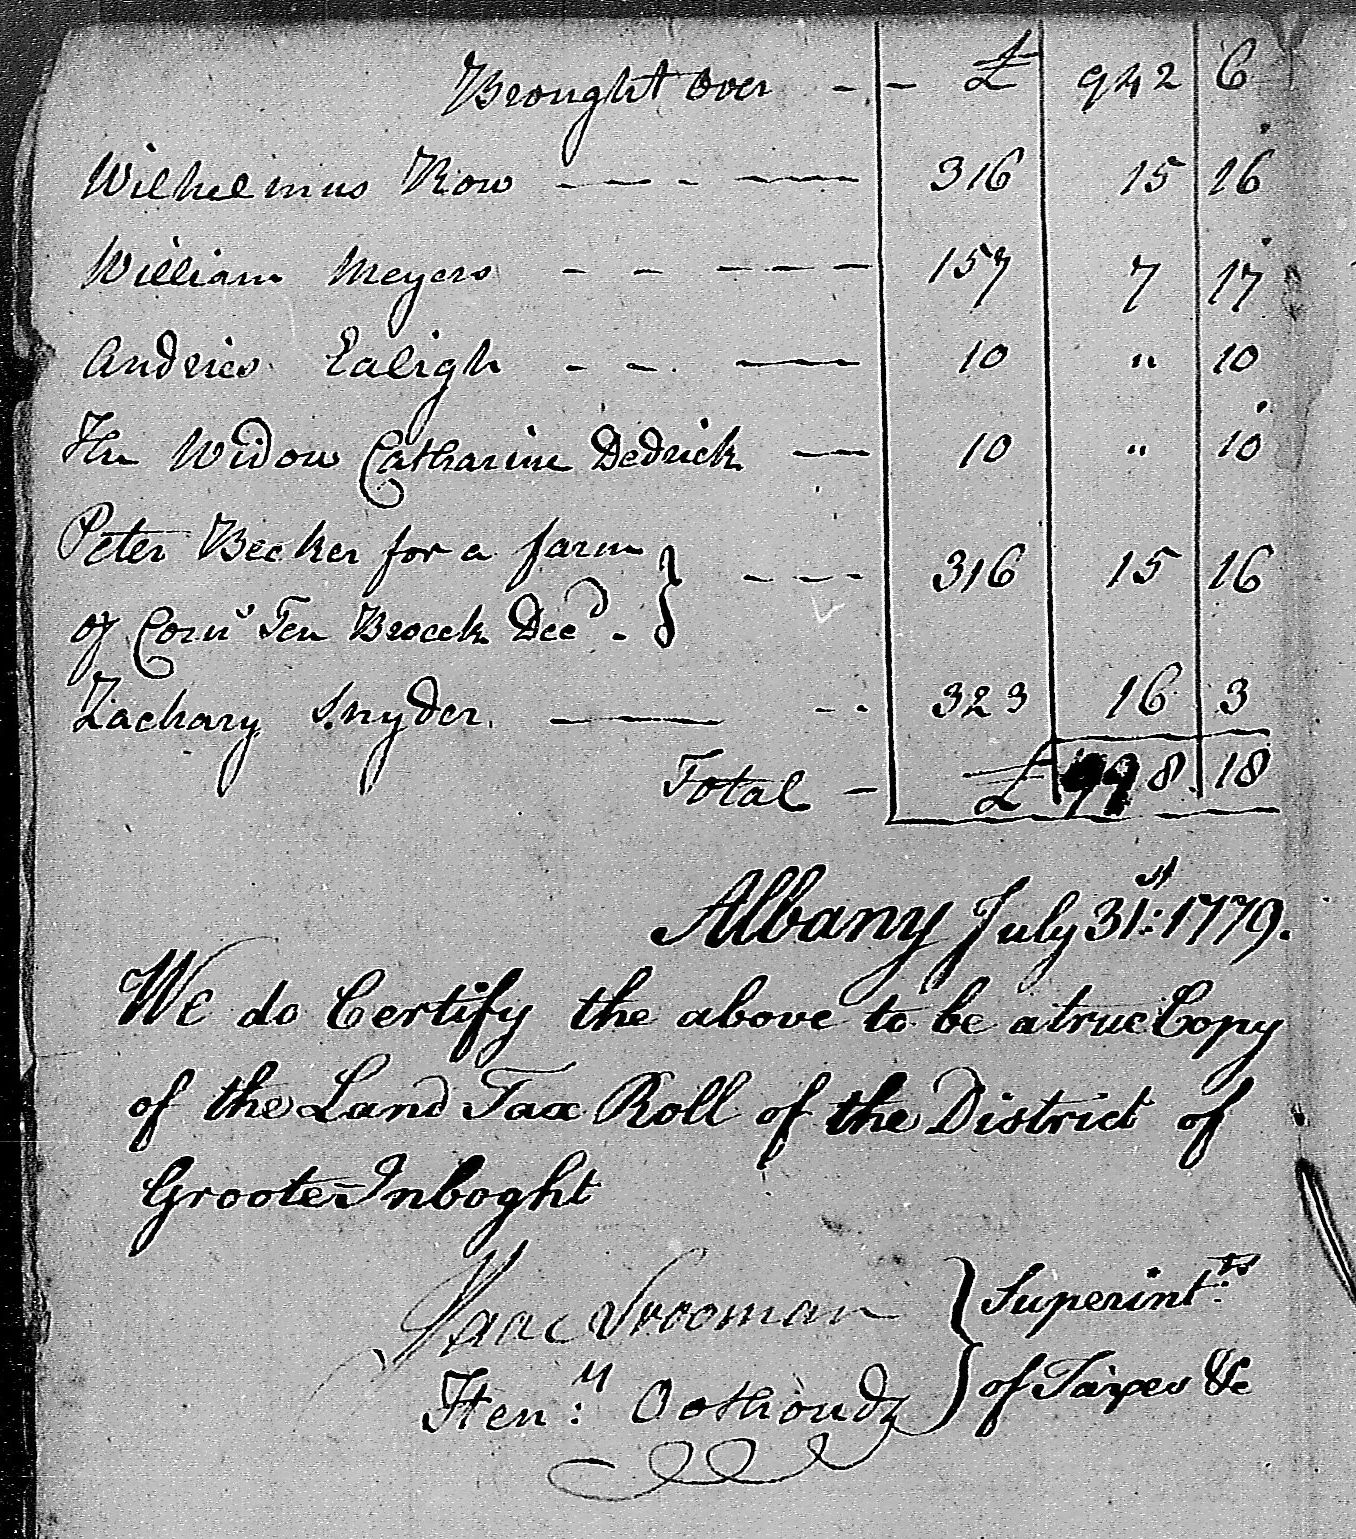 Brought Over - - £ 942 6
Wilhelmus Row - - - - 316 15 16
William Meyers - - - - - 157 7 17
Andries Ealigh - - - 10 " 10
The Widow Catharine Dedrick - 10 " 10
Peter Becker for a farm
of Corns Ten Broeck Decd. } - - - 316 15 16
Zachary Snyder. - - - 323 16 3
Total - £ 998 18
Albany July 31st: 1779.
We do Certify the above to be a true Copy
of the Land Tax Roll of the District of
Groote-Inboght
Isaac Vrooman } Superintts:
Heny: Oothoudt } of Taxes &c